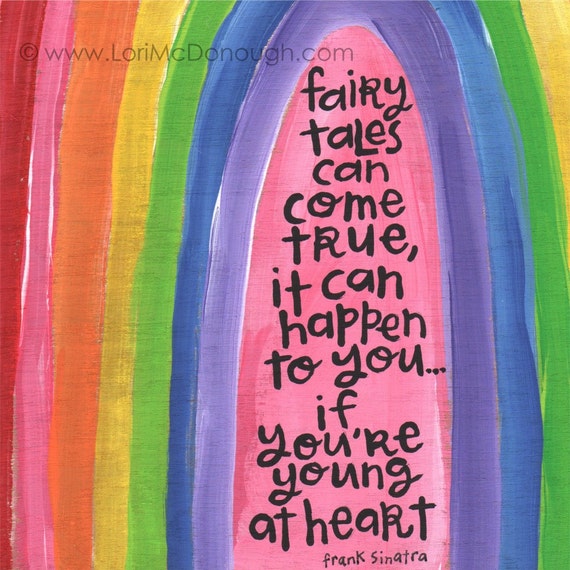 © www.LoriMcDonough.com
fairy
tales
can
come
true,
it can
happen
to you...
if
you're
young
at heart
frank sinatra